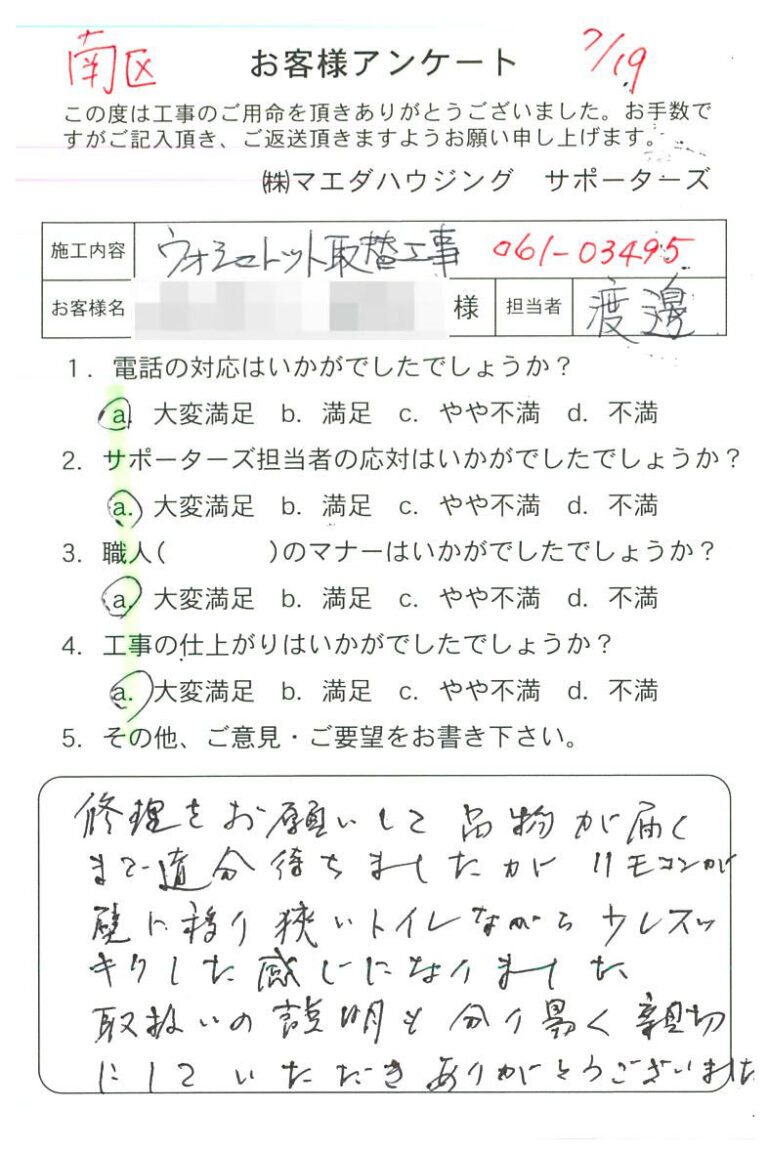 南区 お客様アンケート 7/19
この度は工事のご用命を頂きありがとうございました。お手数で
すがご記入頂き、ご返送頂きますようお願い申し上げます。
㈱マエダハウジング サポーターズ
施工内容 ウォシュレット取替工事 061-03495
お客様名 様 担当者 渡邊
1. 電話の対応はいかがでしたでしょうか?
a. 大変満足 b. 満足 c. やや不満 d. 不満
2. サポーターズ担当者の応対はいかがでしたでしょうか?
a. 大変満足 b. 満足 c. やや不満 d. 不満
3. 職人( )のマナーはいかがでしたでしょうか?
a. 大変満足 b. 満足 c. やや不満 d. 不満
4. 工事の仕上がりはいかがでしたでしょうか?
a. 大変満足 b. 満足 c. やや不満 d. 不満
5. その他、ご意見・ご要望をお書き下さい。
修理をお願いして 品物が届く
まで 分待ちましたが リモコンが
壁に移り狭いトイレながら 少しスッ
キリした感じになりました
取扱いの説明も分り易く親切
にしていただきありがとうございました